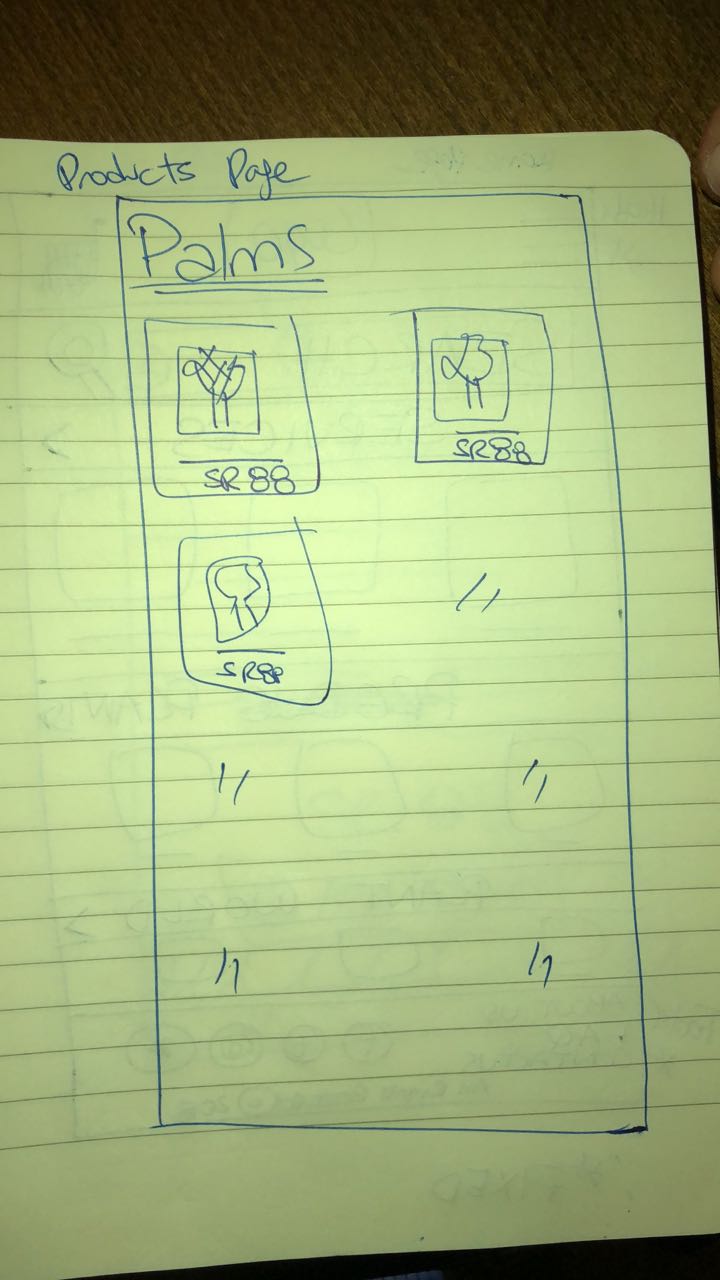 Products Page
Palms
SR88
SR88
SR88
//
//
//
//
//